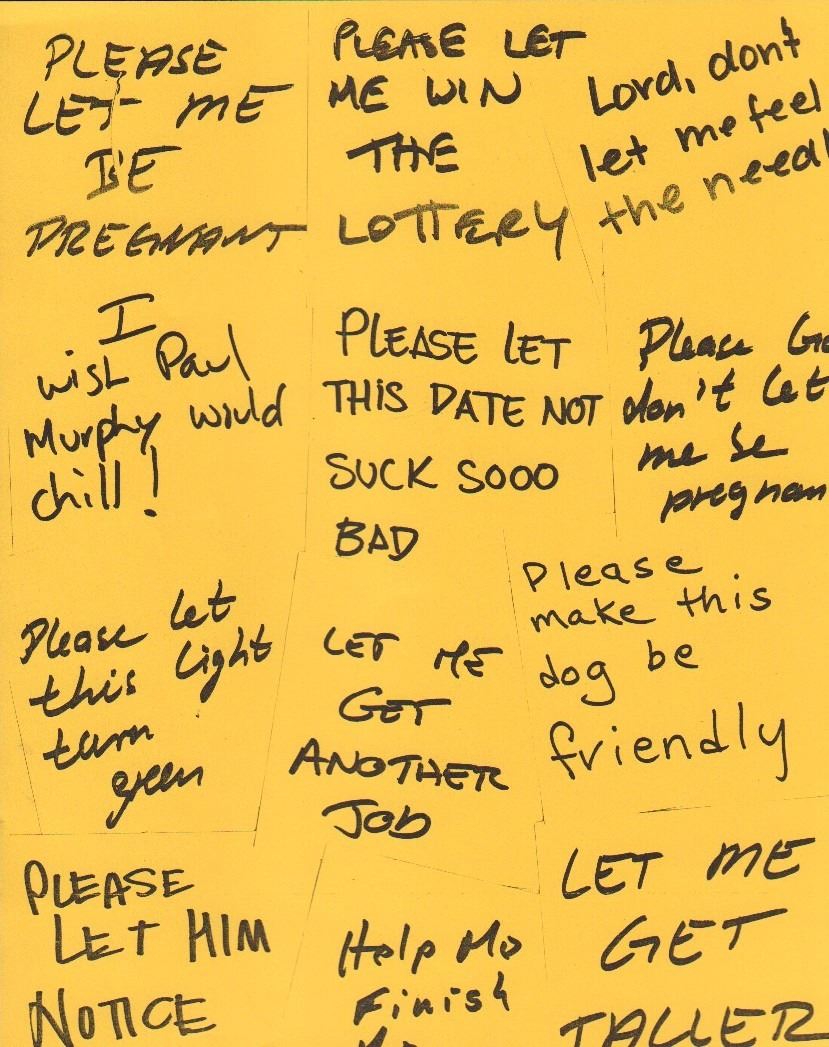 PLEASE
LET ME
BE
PREGNANT
PLEASE LET
ME WIN
THE
LOTTERY
Lord, don't
let me feel
the need
I
wish Paul
Murphy would
chill!
PLEASE LET
THIS DATE NOT
SUCK SOOO
BAD
Please
don't let
me be
Please let
this light
turn
green
LET ME
GET
ANOTHER
JOB
Please
make this
dog be
friendly
PLEASE
LET HIM
NOTICE
Help Me
Finish
LET ME
GET
TALLER